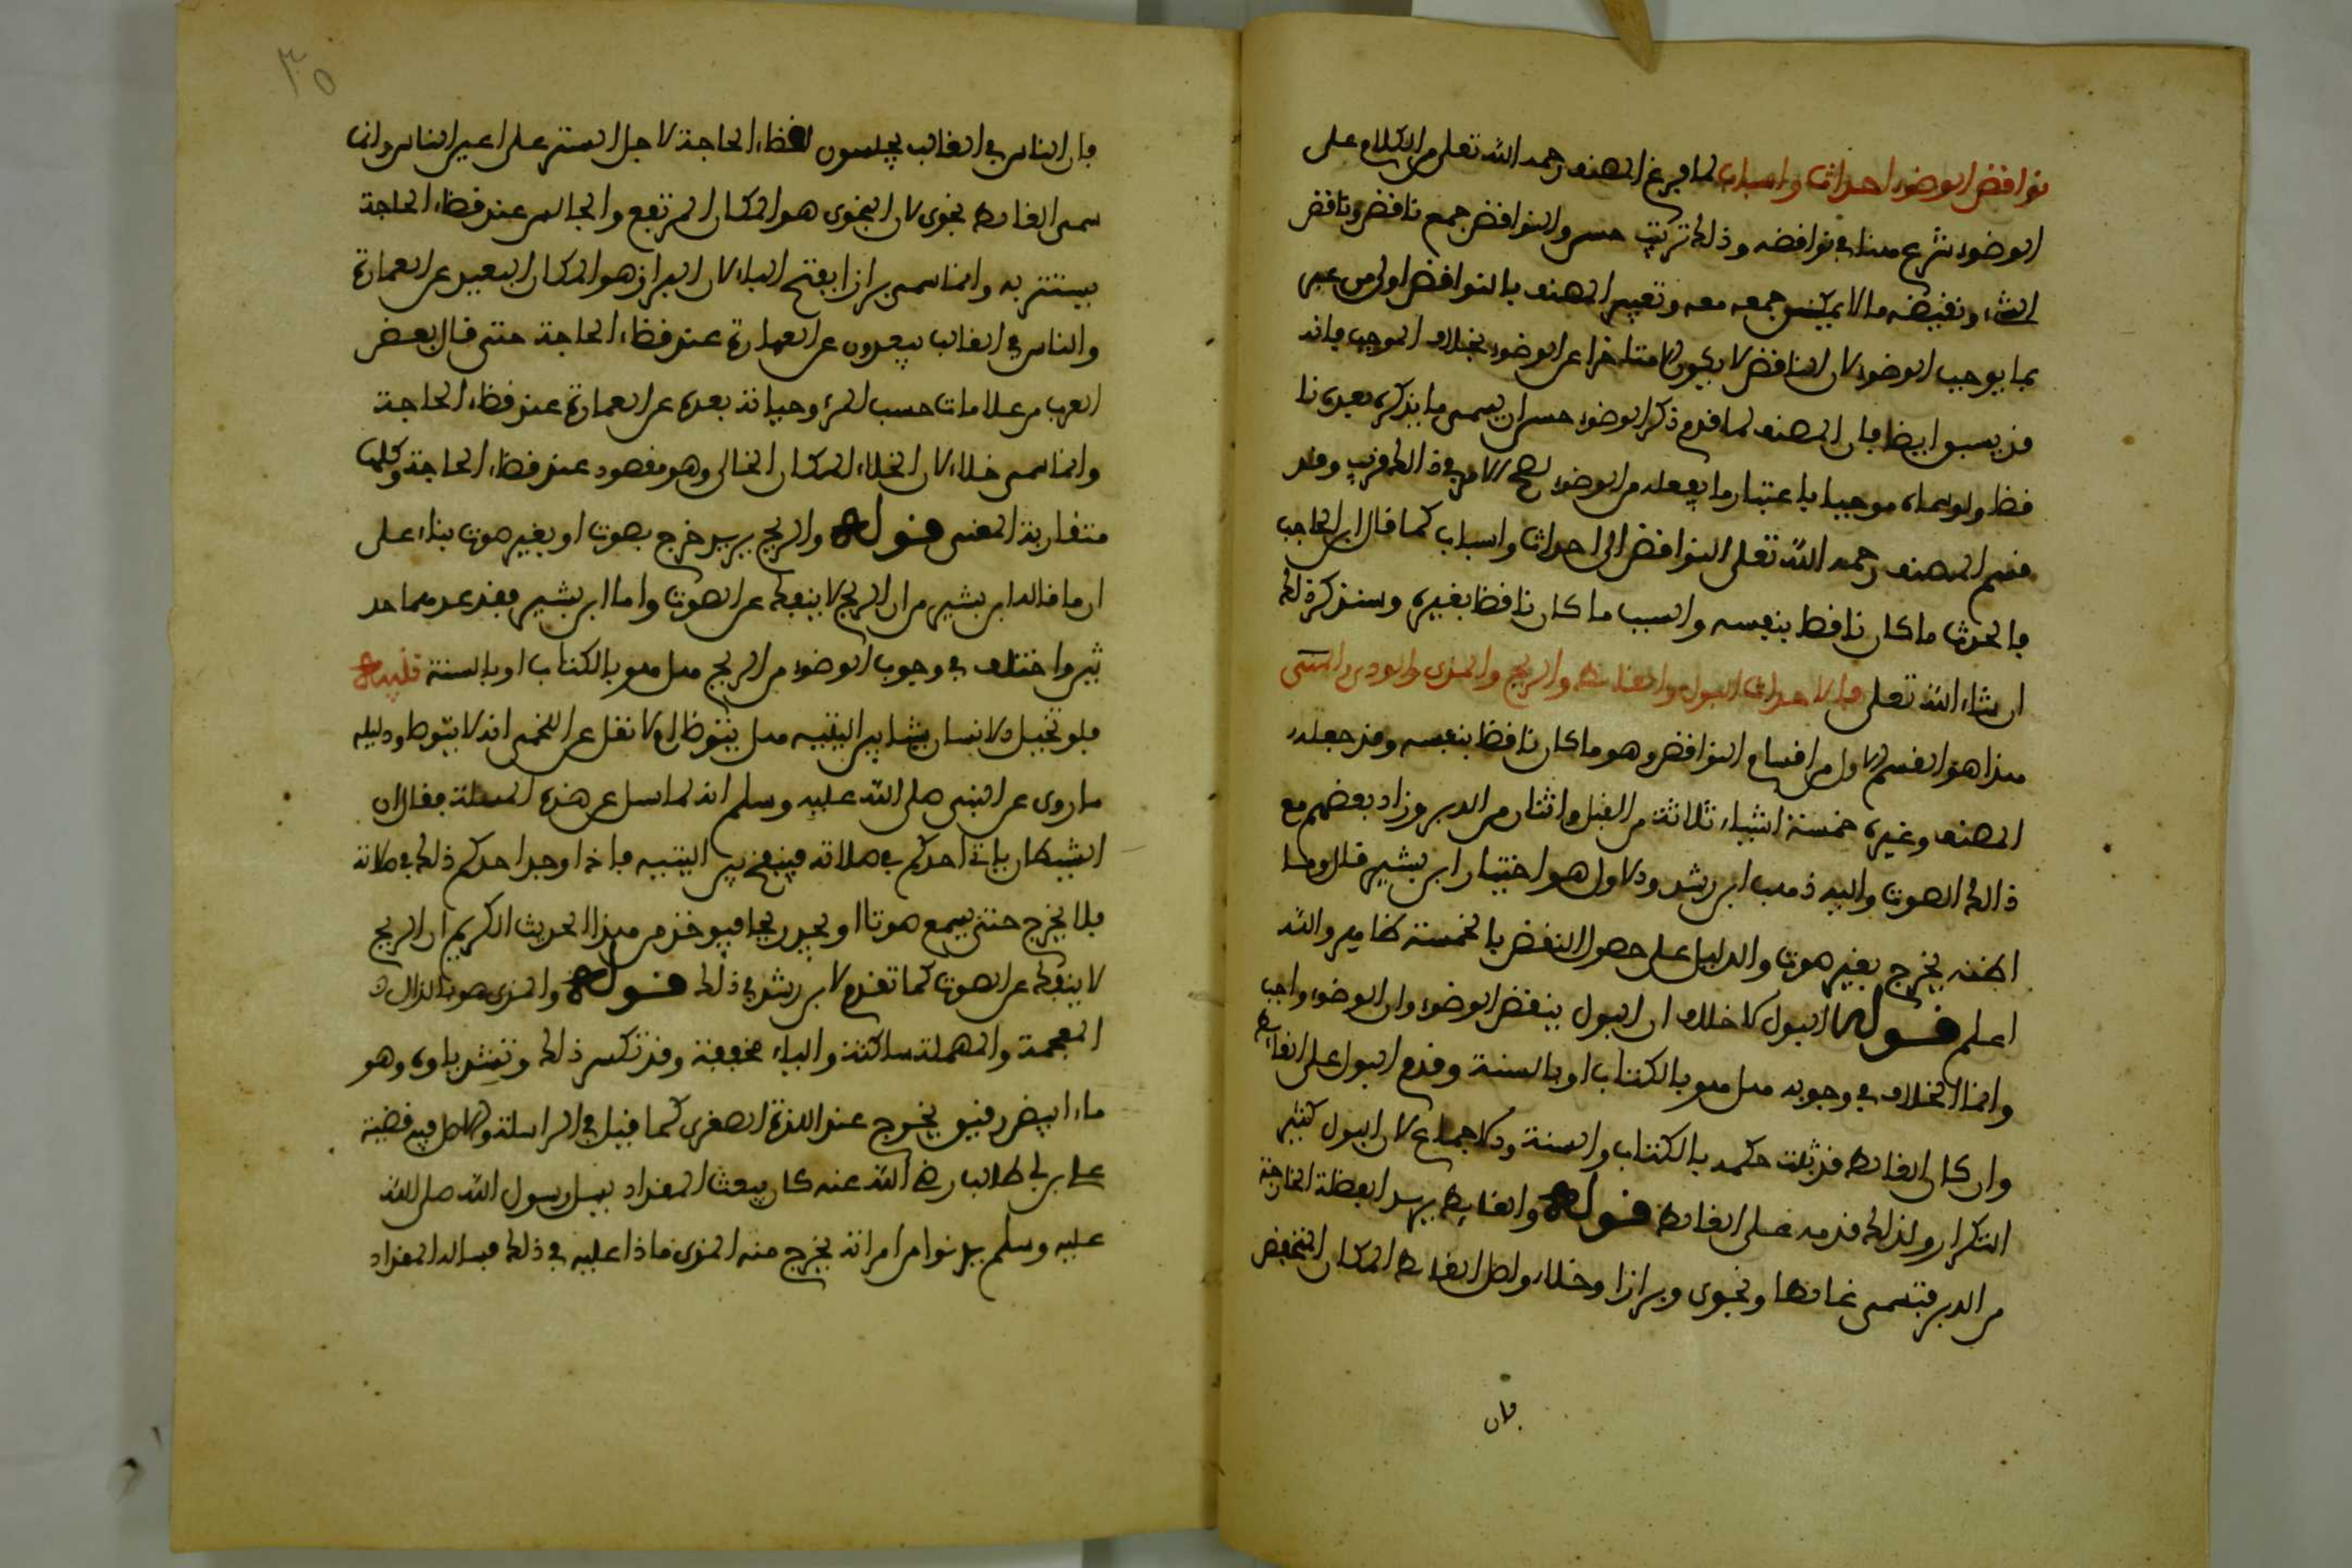 نوافض الوضوء احداث واسباب لما فرغ المصنف رحمه الله تعلى من الكلام على
الوضوء شرع هنا في نوافضه وذلك ترتيب حسن والنوافض جمع نافض ونافض
الشيء ونفيضه ما لا يمكن جمعه معه وتعبير المصنف بالنوافض اولى من غيره
بما يوجب الوضوء لان النافض لا يكون الا متاخرا عن الوضوء بخلاف الموجب فانه
قد يسبق ايضا فان المصنف لما قدم ذكر الوضوء حسن ان يسمى ما يذكره بعده نا
فظا ولو سماه موجبا باعتبار ما يفعله من الوضوء لصح الامر في ذالك قريب وقد
قسم المصنف رحمه الله تعلى النوافض الى احداث واسباب كما قال ابن الحاجب
فالحدث ما كان نافظا بنفسه والسبب ما كان نافظا بغيره وسنذكر ذلك
ان شاء الله تعلى فالاحداث البول والغائط والريح والمذى والودى والمنى
هذا هو القسم الاول من اقسام النوافض وهو ما كان نافظا بنفسه وقد جعله
المصنف وغيره خمسة اشياء ثلاثة من القبل واثنان من الدبر وزاد بعضهم مع
ذالك الصوت واليه ذهب ابن رشد والاول هو اختيار ابن بشير قال وما
اظنه يخرج بغير صوت والدليل على حصول النفض بالخمسة ظاهر والله
اعلم قوله البول لا خلاف ان البول ينفض الوضوء وان الوضوء واجب
وانما الخلاف في وجوبه هل هو بالكتاب او بالسنة وقدم البول على الغائط
وان كان الغائط قد ثبت حكمه بالكتاب والسنة والاجماع لان البول كثير
التكرار ولذالك قدمه على الغائط قوله والغايط يريد الفظلة الخارجة
من الدبر فتسمى غائطا ونجوى وبرازا وخلاء واصل الغائط المكان المنخفض
فان
٣٥
فان الناس في الغالب يجلسون لقظاء الحاجة لاجل الستر على اعين الناس وانما
سمى الغائط نجوى لان النجوى هو المكان المرتفع والجالس عند قظاء الحاجة
يستتر به وانما سمى برازا بفتح الباء لان البراز هو المكان البعيد عن العمارة
والناس في الغالب يبعدون عن العمارة عند قظاء الحاجة حتى قال بعض
العرب من علامات حسب المرء وحيائه بعده عن العمارة عند قظاء الحاجة
وانما سمى خلاء لان الخلاء المكان الخالى وهو مقصود عند قظاء الحاجة وكلها
متقاربة المعنى قوله والريح يريد خرج بصوت او بغير صوت بناء على
ان ما قاله ابن بشير من ان الريح لا ينفك عن الصوت واما ابن بشير فقد عدهما حد
ثين واختلف في وجوب الوضوء من الريح هل هو بالكتاب او بالسنة تنبيه
فلو تخيل الانسان شيئا بين اليتيه هل يتوظا ام لا نقل عن اللخمى انه لا يتوظا ودليله
ما روى عن النبي صلى الله عليه وسلم انه لما سئل عن هذه المسئلة فقال ان
الشيطان ياتى احدكم في صلاته فينفخ بين اليتيه فاذا وجد احدكم ذلك في صلاته
فلا يخرج حتى يسمع صوتا او يجد ريحا فيوخذ من هذا الحديث الكريم ان الريح
لا ينفك عن الصوت كما تقدم لابن رشد في ذلك قوله والمذى هو بالذال
المعجمة والمهملة ساكنة والياء مخففة وقد تكسر ذاله وتشد ياوه وهو
ماء ابيض رقيق يخرج عند اللذة الصغرى كما قيل في الرسالة والاصل فيه قضية
على بن ابي طالب رضى الله عنه كان يبعث المقداد يسل رسول الله صلى الله
عليه وسلم يدنوا من امراته يخرج منه المذى ماذا عليه في ذلك فساله المقداد